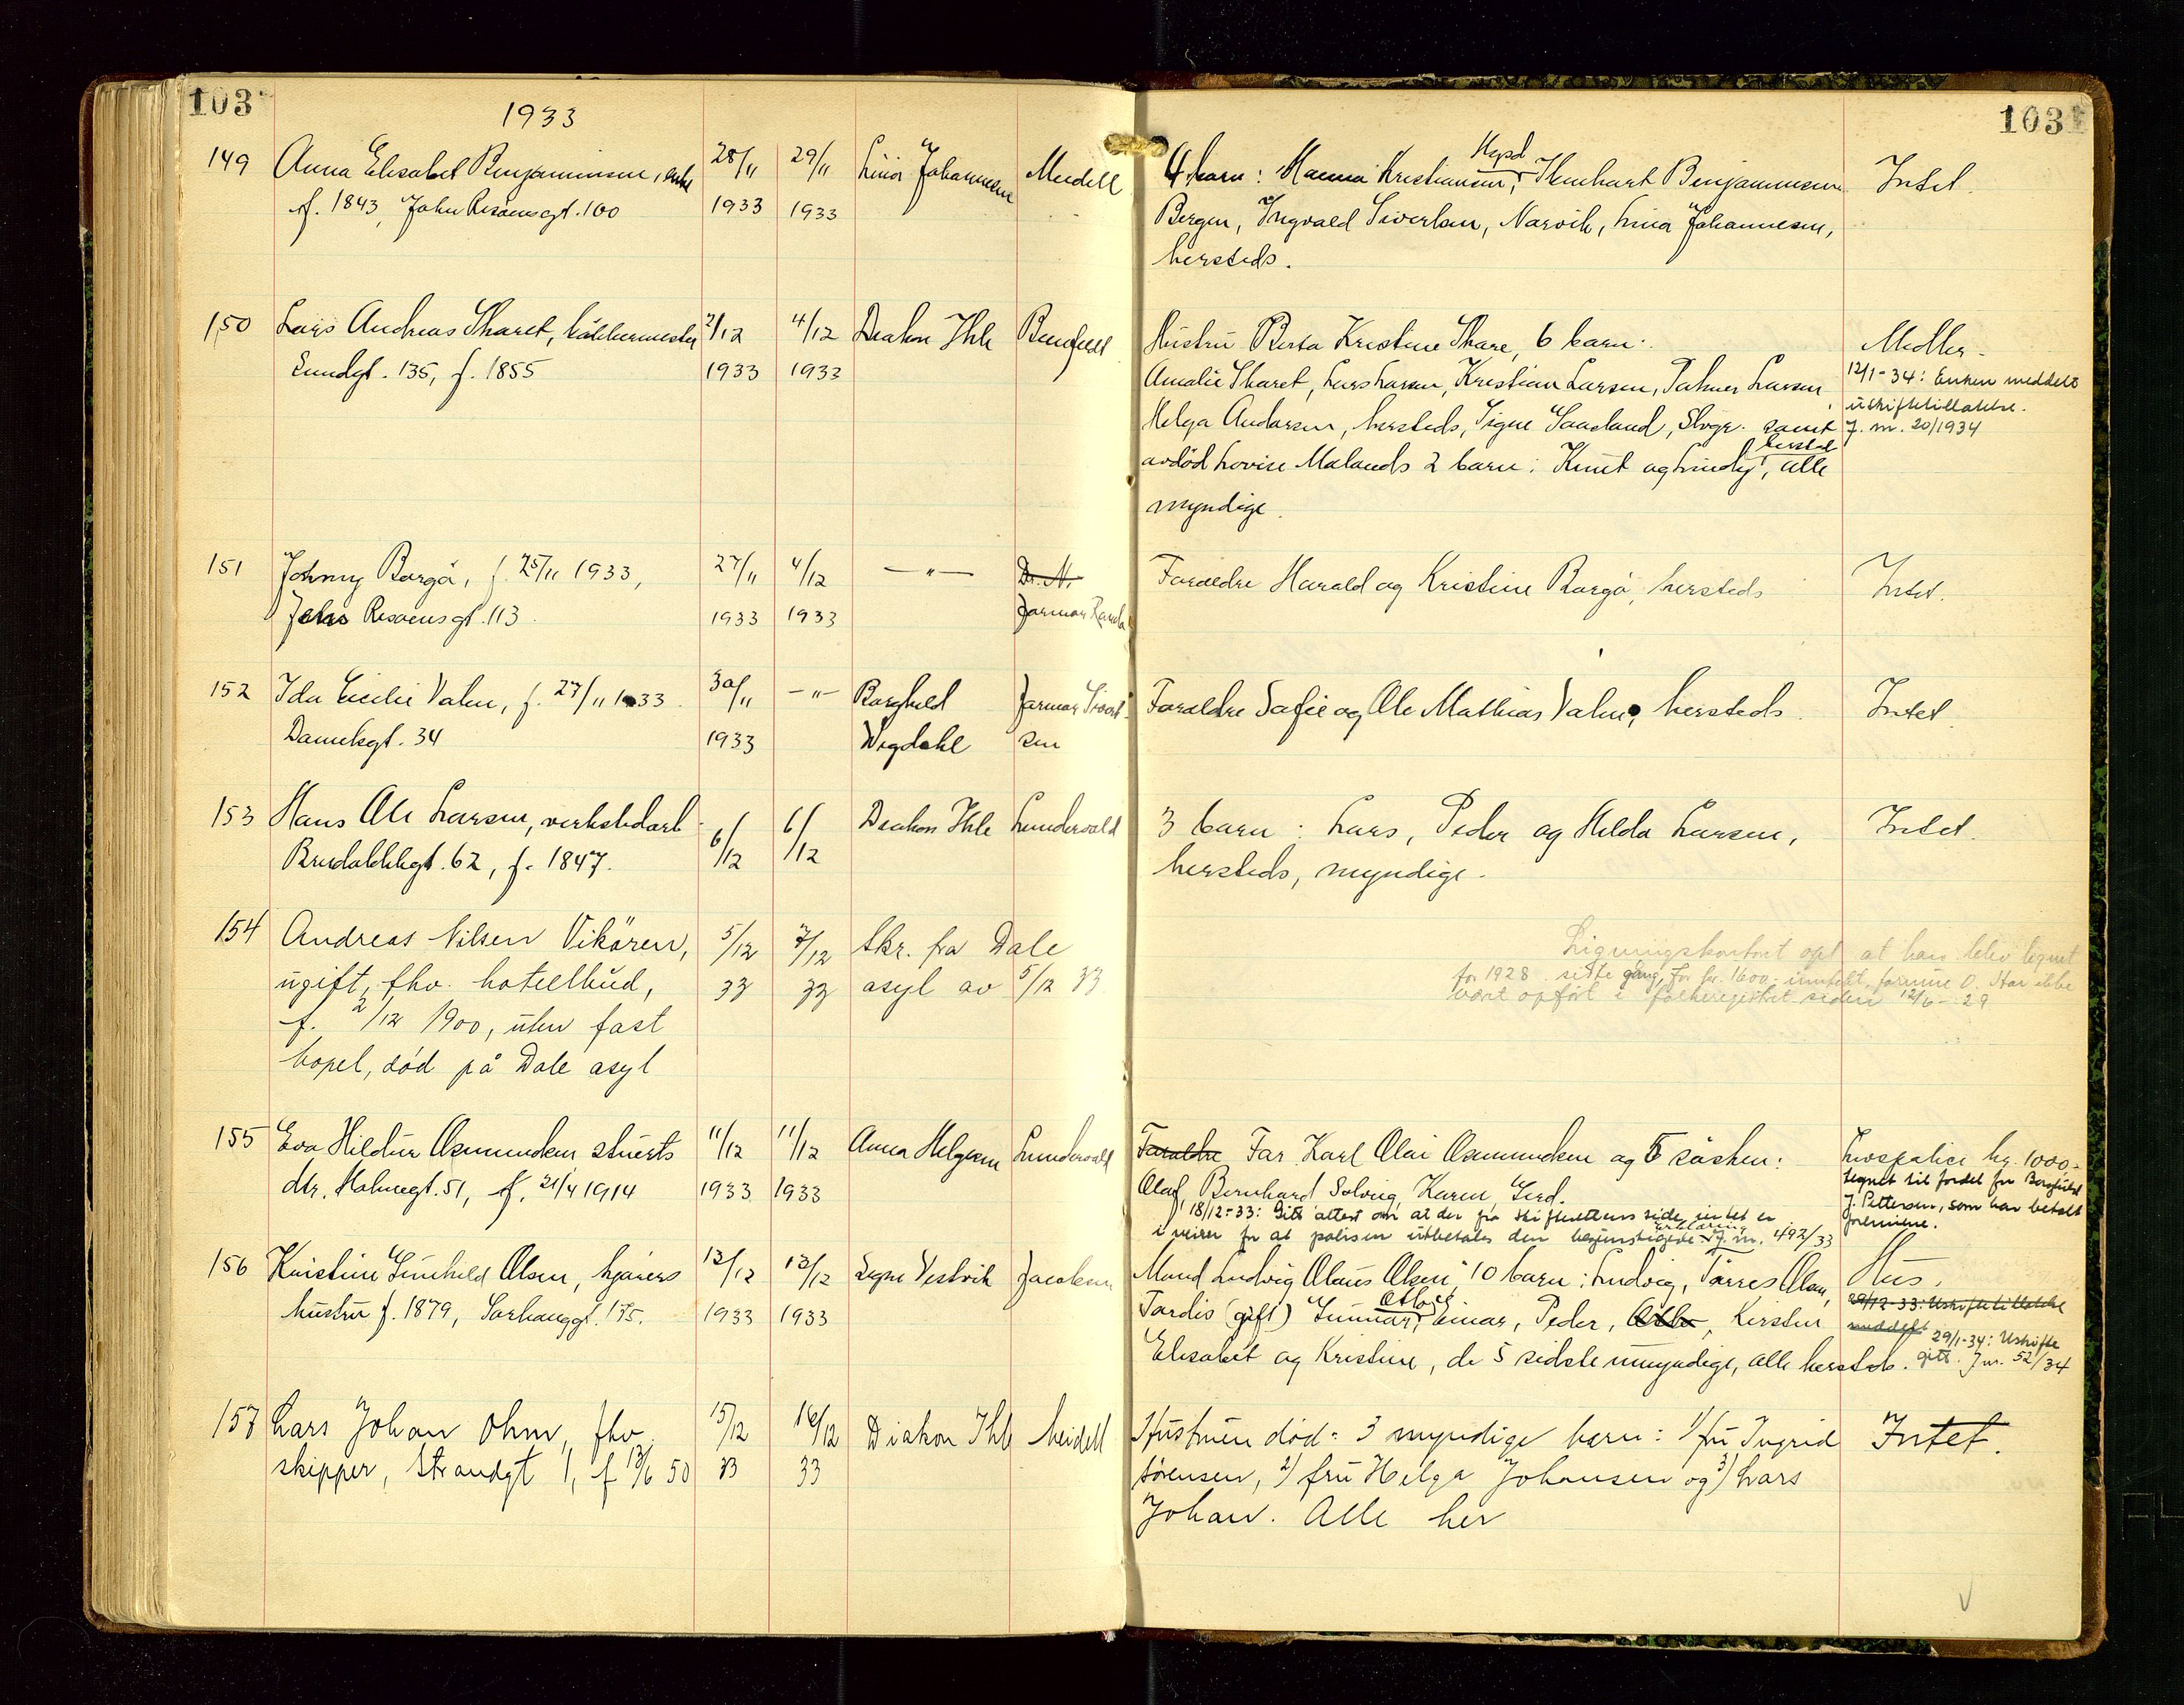 103
1933
103
149 Anna Elisabet Benjaminsen, enke 28/11 29/11 Lina Johannesen Meidell
f. 1843, John Risøensgt. 100 1933 1933
Hgsd
4 barn: Hanna Kristiansen, Benjaminsen Intet.
Bergen, Ingvald Sivertsen, Narvik, Lina Johannesen,
hersteds.
150 Lars Andreas Skaret, bökkermester 2/12 4/12 Deakon Ihle Bergfeldt
Lundgt. 135, f. 1855 1933 1933
Hustru Berta Kristine Skare, 6 barn: Møbler.
Amalie Skaret, Lars Larsen, Kristian Larsen, Palmer Larsen, 12/1-34: Enken meddelt
Helga Andersen, hersteds, Signe Saasland, Skoge. samt uskiftetillatelse.
J. nr. 20/1934
avdöd Lovise Malands 2 barn: Knut og Lundy, hersted, alle
myndige.
151 Johnny Borgö, f. 25/11 1933, 27/11 4/12 — " — Dr. N.
John Risøensgt. 113. 1933 1933 Jormor
Foraeldre Harald og Kristine Borgö, hersteds Intet.
152 Ida Cecilie Valen, f. 27/11 1933. 30/11 — " — Borghild Jormor Sivert-
Damsgt. 34 1933 Wigdahl sen
Foraeldre Sofie og Ole Mathias Valen, hersteds. Intet.
153 Hans Ole Larsen, verkstedarb. 6/12 6/12 Deakon Ihle Lundervold
Bredalikkgt. 62, f. 1847.
3 barn: Lars, Peder og Hilda Larsen, Intet.
hersteds, myndige.
154 Andreas Nilsen Vikören, 5/12 7/12 Skr. fra Dale
ugift, fhv. hotellbud, 33 33 asyl av 5/12 33
f. 2/12 1900, uten fast
bopel, död på Dale asyl
Ligningskontoret opl at han blev lignet
for 1928 siste gang, for kr. 1600.- inntekt, formue 0. Har ikke
vært opfört i folkeregistret siden 12/6-29
155 Eva Hildur Osmundsen stuerts 11/12 11/12 Anna Helgesen Lundervold
dtr. Holmegt. 51, f. 21/4 1914 1933 1933
Foraeldre Far Karl Olai Osmundsen og 5 søsken: Livspolice kr. 1000.-
Olaf, Bernhard Solveig, Karen, Gerd. tegnet til fordel for Bergfield
18/12-33: Gitt attest om at der fra skifterettens side intet er J. Pettersen, som har betalt
i veien for at polisen utbetales den begunstigede. erklæring J. nr. 492/33 premiene.
156 Kristine Gunhild Olsen, kjørers 12/12 13/12 Signe Vestvik Jacobsen
hustru f. 1879, Sørhauggt. 175. 1933 1933
Mand Ludvig Olaus Olsen, 10 barn: Ludvig, Tørres Olau, Hus.
Tordis (gift) Gunnar, Einar, Peder, Kirsten 29/12-33: Uskiftetillatelse
meddelt 29/1-34: Uskifte
Elisabet og Kristine, de 5 sidste umyndige, alle hersteds. gitt. J nr. 52/34
157 Lars Johan Ohm, fhv. 15/12 16/12 Diakon Ihle Meidell
skipper, Strandgt 1, f 13/6 50 33 33
Hustruen död. 3 myndige barn: 1/ fru Ingrid Intet.
Sörensen, 2/ fru Helga Johansen og 3) Lars
Johan. Alle her